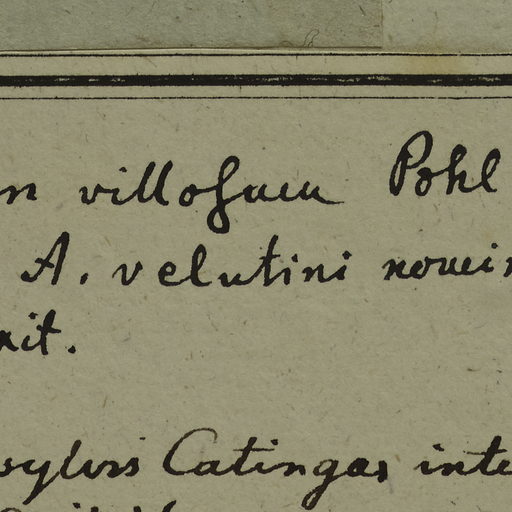 n villosum Pohl
A. velutini nomin
it.
sylvis Catingas inte